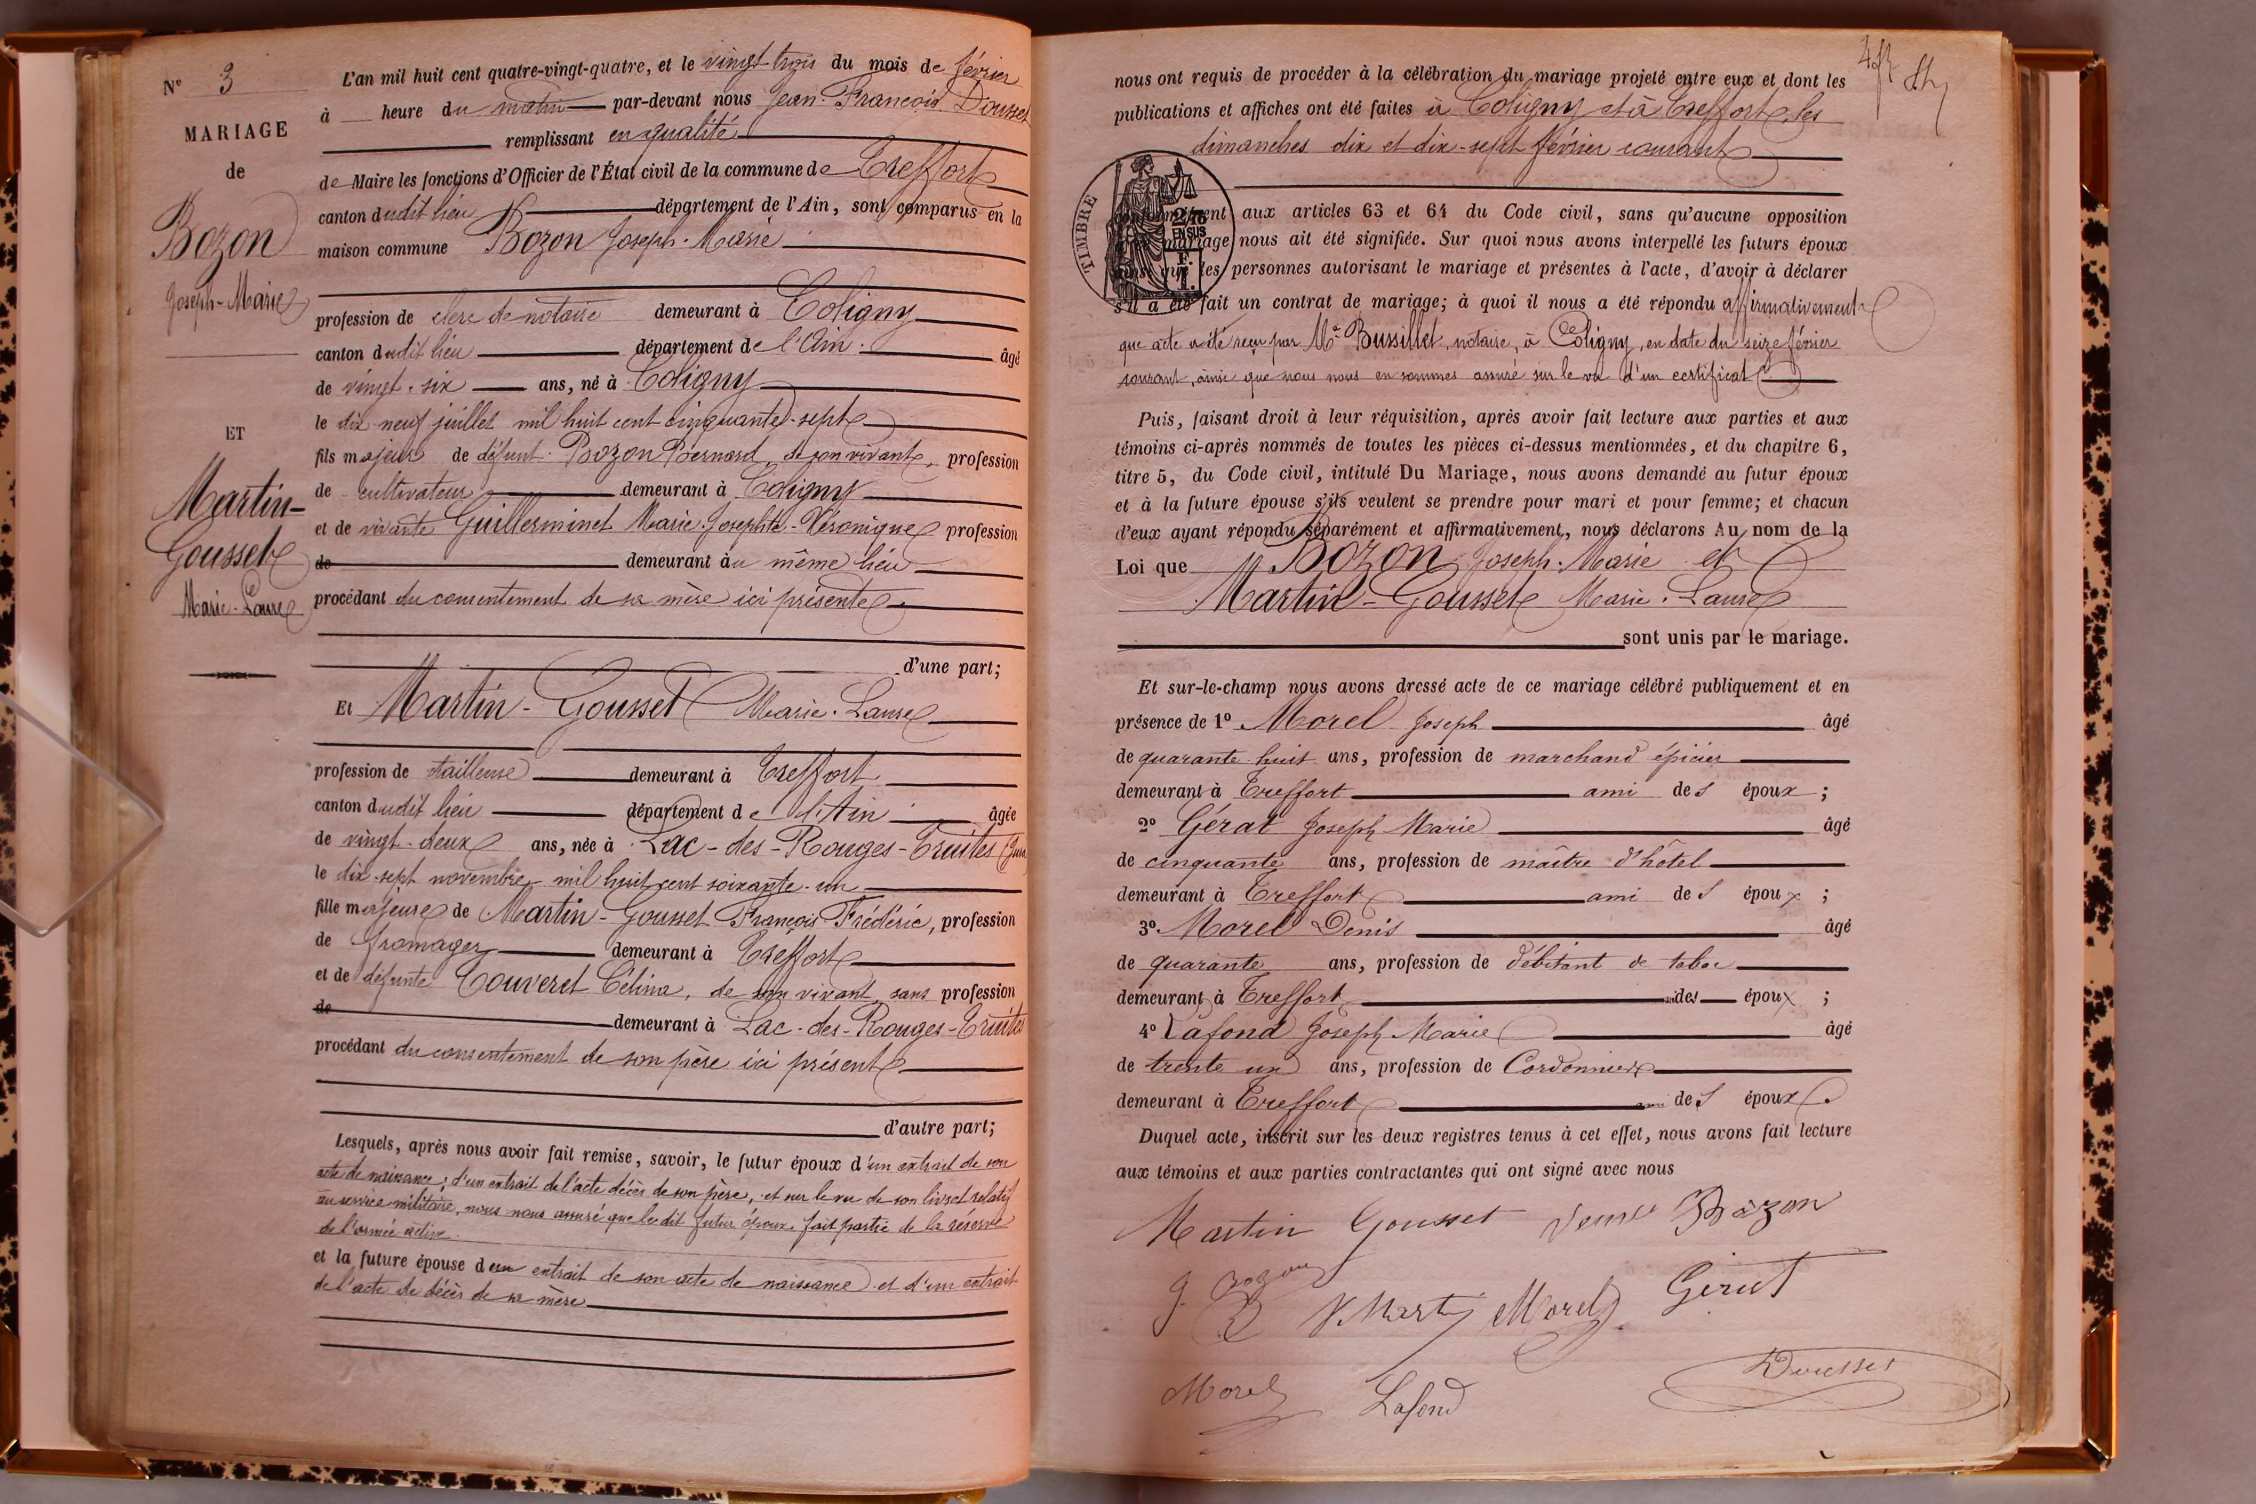 Nº 3
MARIAGE
de
Bozon
Joseph-Marie
ET
Martin-
Gousset
Marie-Laure
L'an mil huit cent quatre-vingt-quatre, et le vingt-trois du mois de février
à heure du matin par-devant nous Jean-François Dousset
remplissant en qualité
de Maire les fonctions d'Officier de l'État civil de la commune de Treffort
canton dudit lieu département de l'Ain, sont comparus en la
maison commune Bozon Joseph-Marie
profession de clerc de notaire demeurant à Coligny
canton dudit lieu département de l'Ain. âgé
de vingt-six ans, né à Coligny
le dix neuf juillet mil huit cent cinquante-sept
fils majeur de défunt Bozon Bernard, de son vivant, profession
de cultivateur demeurant à Coligny
et de vivante Guillerminet Marie-Josephte-Véronique profession
de demeurant au même lieu
procédant du consentement de sa mère ici présente
d'une part;
Et Martin-Gousset Marie-Laure
profession de tailleuse demeurant à Treffort
canton dudit lieu département de l'Ain âgée
de vingt-deux ans, née à Lac-des-Rouges-Truites (Jura
le dix-sept novembre mil huit cent soixante-un
fille majeure de Martin-Gousset François Frédéric, profession
de fromager demeurant à Treffort
et de défunte Couveret Célina, de son vivant, sans profession
de demeurant à Lac-des-Rouges-Truites
procédant du consentement de son père ici présent
d'autre part;
Lesquels, après nous avoir fait remise, savoir, le futur époux d'un extrait de son
acte de naissance; d'un extrait de l'acte décès de son père, et sur le vu de son livret relatif
au service militaire, nous nous assuré que ledit futur époux fait partie de la réserve
de l'armée active.
et la future épouse d'un extrait de son acte de naissance et d'un extrait
de l'acte de décès de sa mère
nous ont requis de procéder à la célébration du mariage projeté entre eux et dont les
publications et affiches ont été faites à Coligny et à Treffort, les
dimanches dix et dix-sept février courant
TIMBRE
EN SUS
aux articles 63 et 64 du Code civil, sans qu'aucune opposition
mariage nous ait été signifiée. Sur quoi nous avons interpellé les futurs époux
que les personnes autorisant le mariage et présentes à l'acte, d'avoir à déclarer
s'il a été fait un contrat de mariage; à quoi il nous a été répondu affirmativement
que acte a été reçu par Me Bussillet, notaire, à Coligny, en date du seize février
courant, ainsi que nous nous en sommes assuré sur le vu d'un certificat
Puis, faisant droit à leur réquisition, après avoir fait lecture aux parties et aux
témoins ci-après nommés de toutes les pièces ci-dessus mentionnées, et du chapitre 6,
titre 5, du Code civil, intitulé Du Mariage, nous avons demandé au futur époux
et à la future épouse s'ils veulent se prendre pour mari et pour femme; et chacun
d'eux ayant répondu séparément et affirmativement, nous déclarons Au nom de la
Loi que Bozon Joseph-Marie et
Martin-Gousset Marie-Laure
sont unis par le mariage.
Et sur-le-champ nous avons dressé acte de ce mariage célébré publiquement et en
présence de 1º Morel Joseph âgé
de quarante huit ans, profession de marchand épicier
demeurant à Treffort ami des époux;
2º Gérat Joseph Marie âgé
de cinquante ans, profession de maître d'hôtel
demeurant à Treffort ami des époux;
3º Morel Denis âgé
de quarante ans, profession de débitant de tabac
demeurant à Treffort des époux;
4º Lafond Joseph Marie âgé
de trente un ans, profession de Cordonnier
demeurant à Treffort ami des époux.
Duquel acte, inscrit sur les deux registres tenus à cet effet, nous avons fait lecture
aux témoins et aux parties contractantes qui ont signé avec nous
Martin Gousset Bozon
J. Bozon Morel Gerat
Morel Lafond Dousset